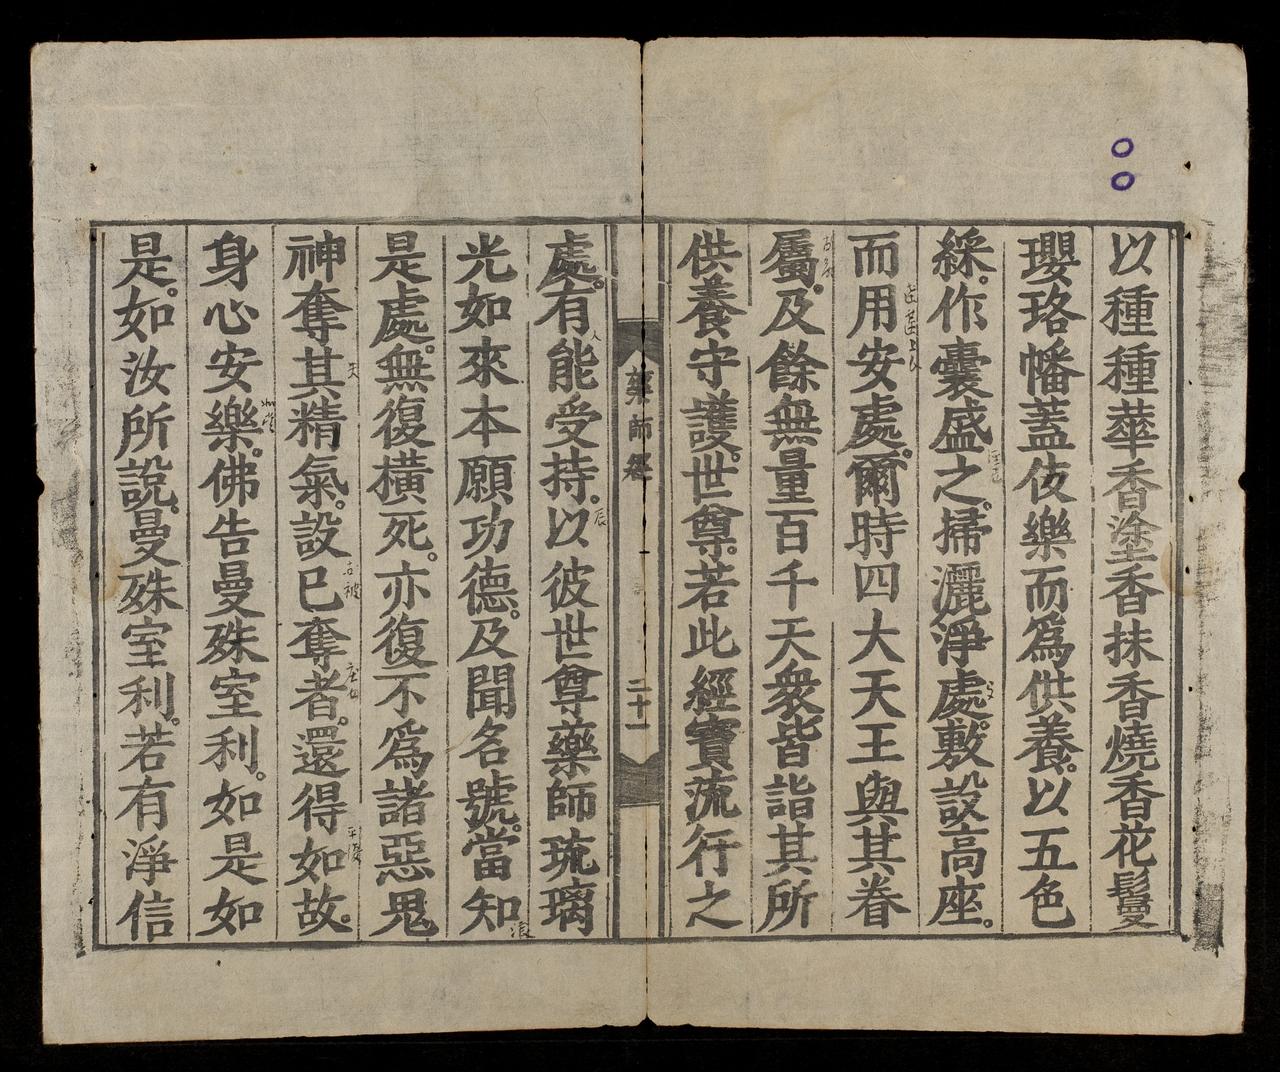 以種種華香塗香抹香燒香花鬘
瓔珞幡蓋伎樂而爲供養。以五色
綵。作囊盛之。掃灑淨處。敷設高座。
而用安處。爾時四大天王與其眷
屬。及餘無量百千天衆皆詣其所
供養守護。世尊。若此經寶流行之
藥師經
二十一
處。有能受持。以彼世尊藥師琉璃
光如來本願功德。及聞名號。當知
是處。無復橫死。亦復不爲諸惡鬼
神奪其精氣。設已奪者。還得如故。
身心安樂。佛告曼殊室利。如是如
是。如汝所說。曼殊室利。若有淨信